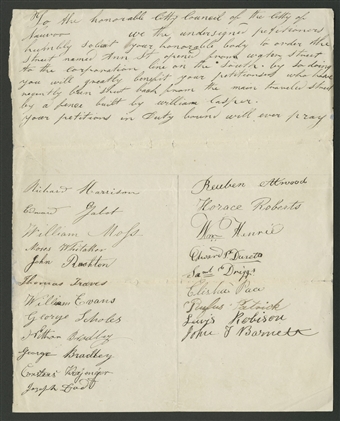 To the honorable City Council of the City of
Nauvoo we the undersigned petitioners
humbly solicit your honorable body to order the
street named Ann St. opened from water street
to the corporation line on the South. by so doing
you will greatly benefit your petitioners who have
recently been shut back from the main traveled street
by a fence built by william Casper.
your petitions in Duty bound will ever pray
Richard Harrison
Edward
William Moss
Moses Whitaker
John Rushton
Thomas
William Evans
George Scholes
George Bradley
Joseph
Reuben Atwood
Horace Roberts
Wm
Edward P Duzette
Saml Driggs
Elisha
Rufus
Lewis Robison
John T Barnett